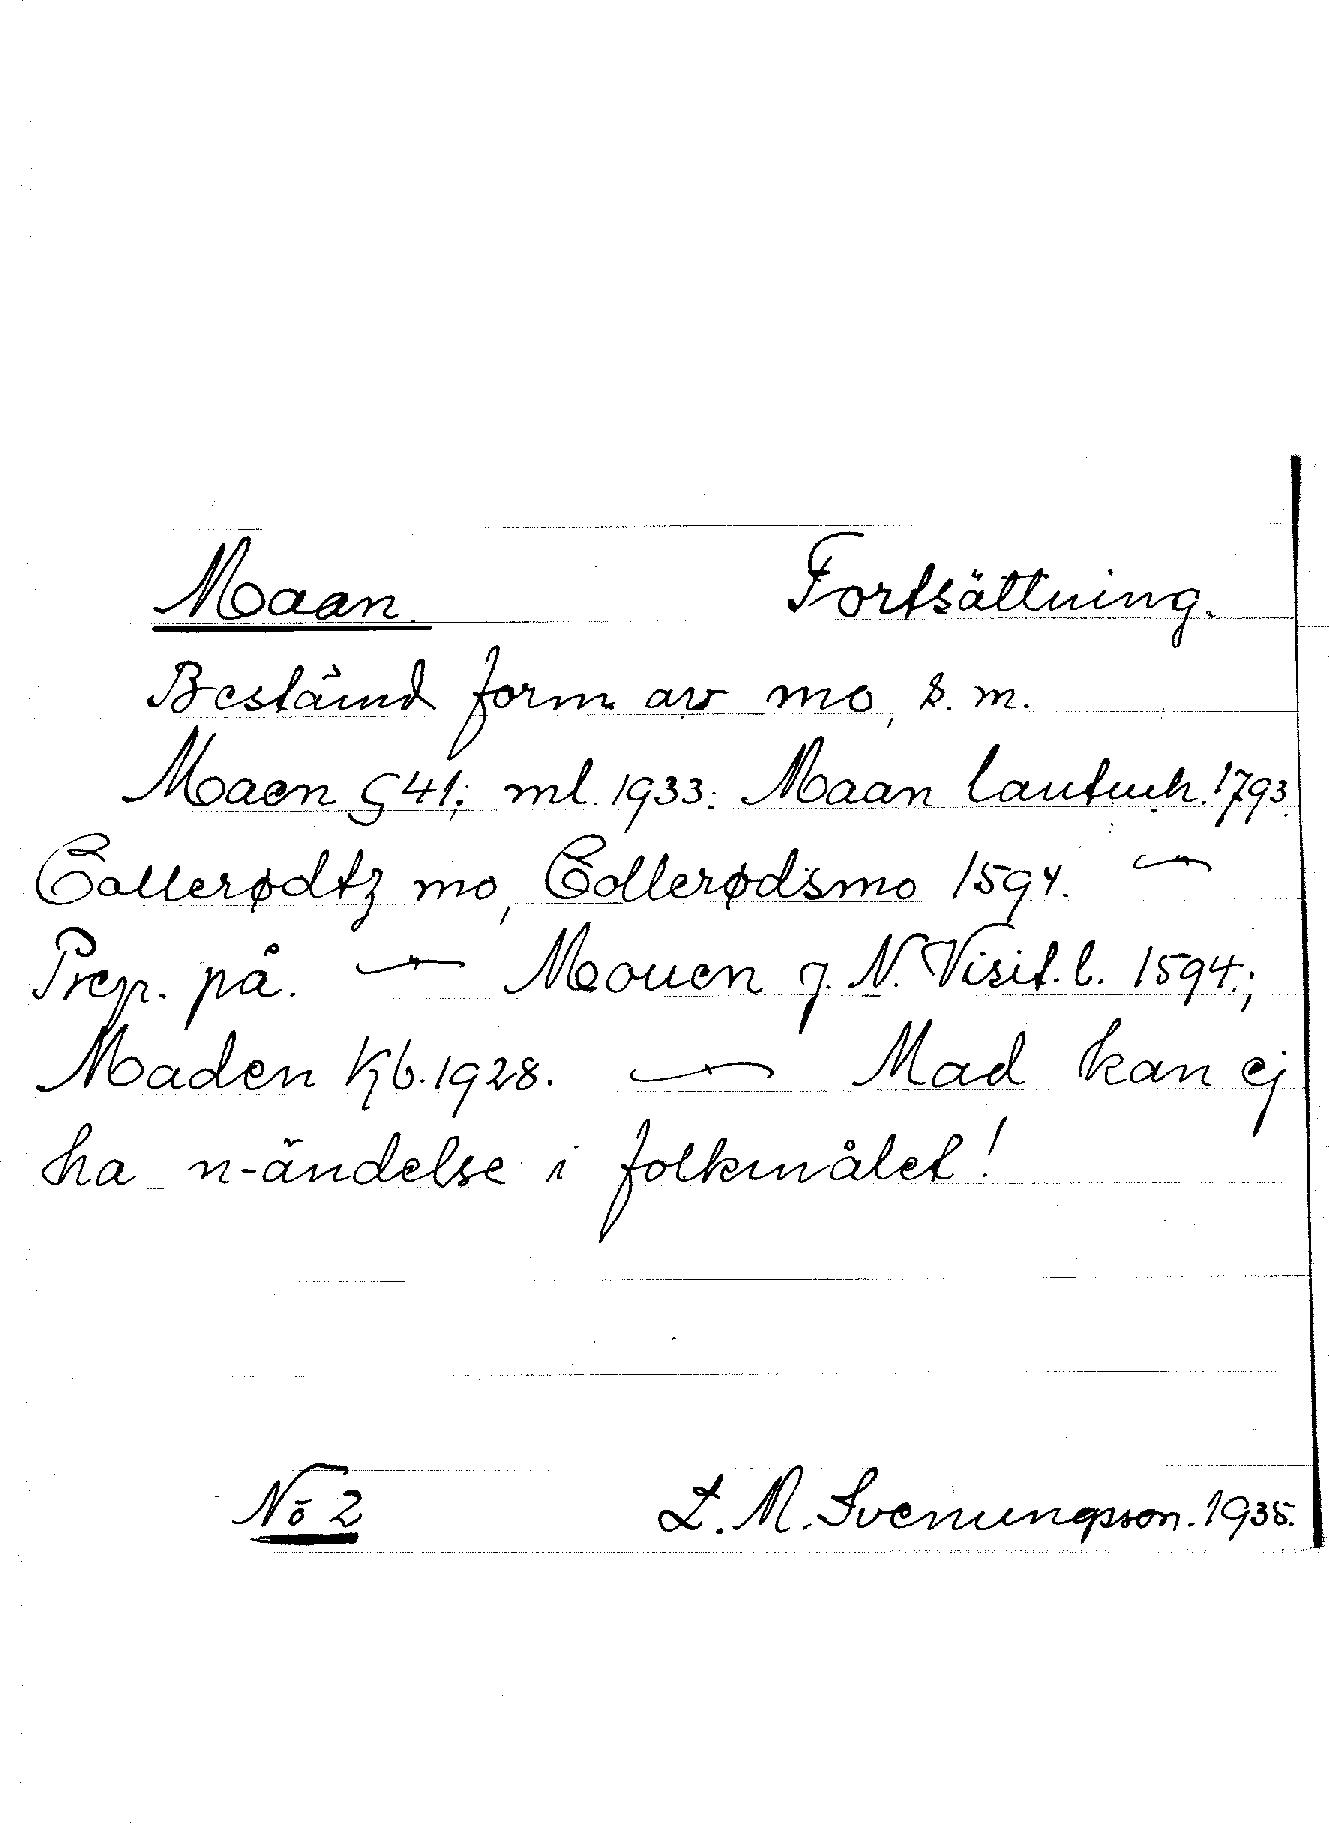 Maan. Fortsättning.
Bestämd form av mo, s. m.
Maen G 41; ml. 1933. Maan 1793.
Collerødtz mo, Collerødsmo 1594. —
Prep. på. — Mouen J. N. Visit. b. 1594.;
Maden Kb. 1928. — Mad kan ej
ha n-ändelse i folkmålet!
No 2 L. M. Svenungsson. 1935.